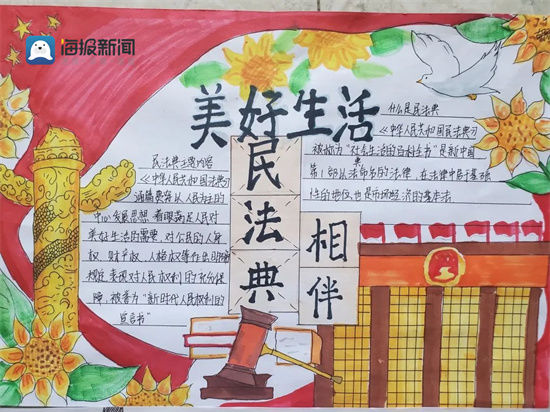 海报新闻
美好生活
民法典
相伴
民法典主要内容
《中华人民共和国民法典》
通篇贯穿以人民为主的
中心发展思想，着眼满足人民对
美好生活的需要，对公民的人身
权、财产权、人格权等作出明确
规定，表现对人民权利的充分保
障，被誉为“新时代人民权利的
宣言书”
什么是民法典
《中华人民共和国民法典》
被称为“社会生活的百科全书”是新中国
第1部以法典命名的法律，在法律中居于基础
性的地位，也是市场经济的基本法